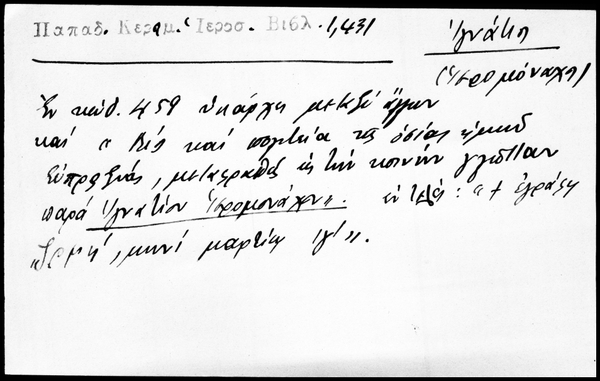 Παπαδ. Κεραμ. Ἱεροσ. Βιβλ. 1,431
Ἰγνάτιος
(Ἱερομόναχος)
Ἐν κώδ. 459 ὑπάρχει μεταξὺ ἄλλων
καὶ « Βίος καὶ πολιτεία τῆς ὁσίας ἡμῶν
Εὐπραξίας, μεταφρασθεὶς εἰς τὴν κοινὴν γλῶτταν
παρὰ Ἰγνατίου Ἱερομονάχου». ἐν τέλει : «+ ἐγράφη
μηνὶ μαρτίῳ ιγ´».